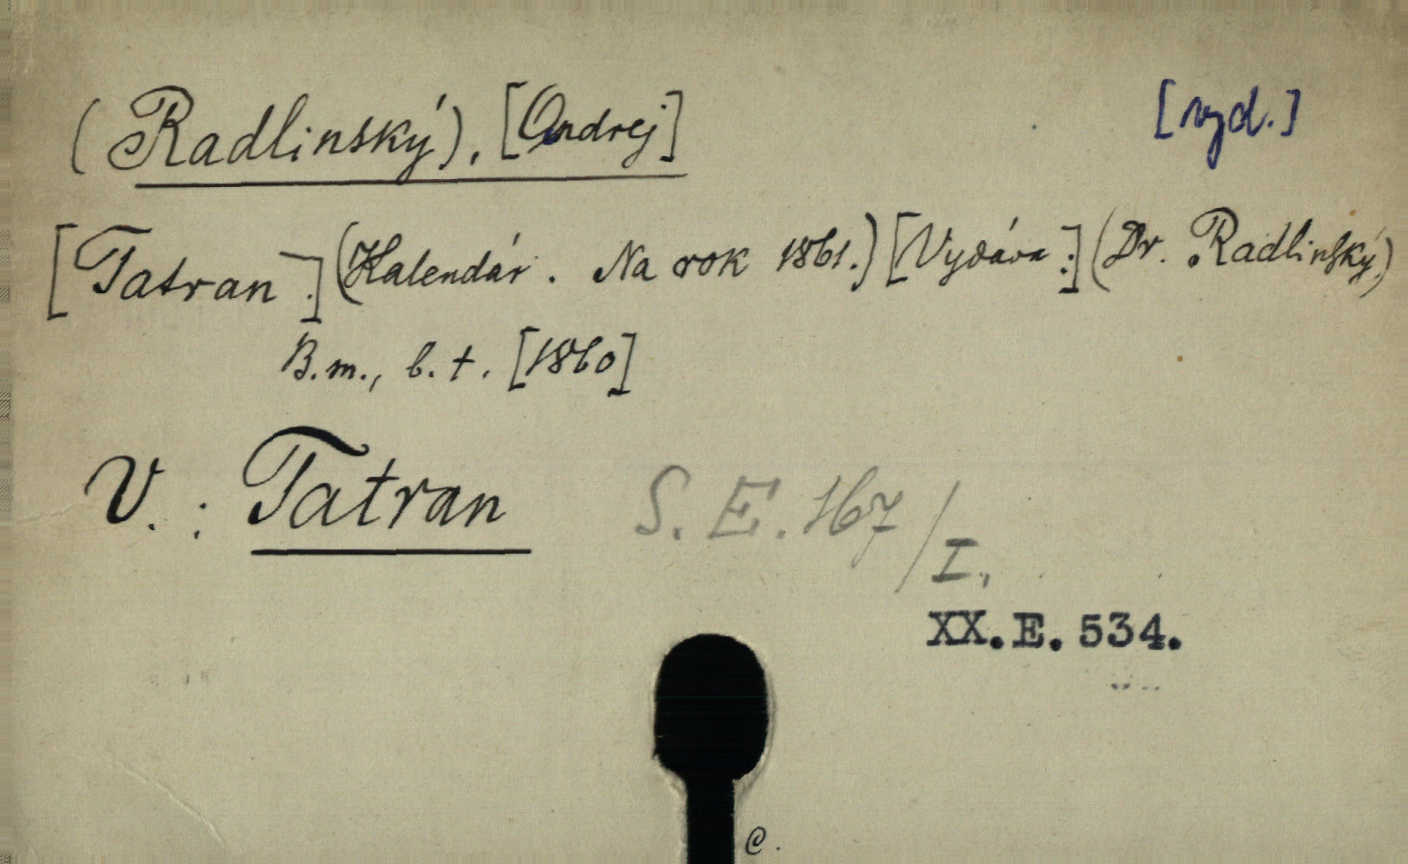 (Radlinský), [Ondrej] [vyd.]
[Tatran.] (Kalendár. Na rok 1861.) [Vydáva:] (Dr. Radlinský.)
B.m., b.t. [1860]
V.: Tatran
S.E. 167/I.,
XX.E.534.
C.